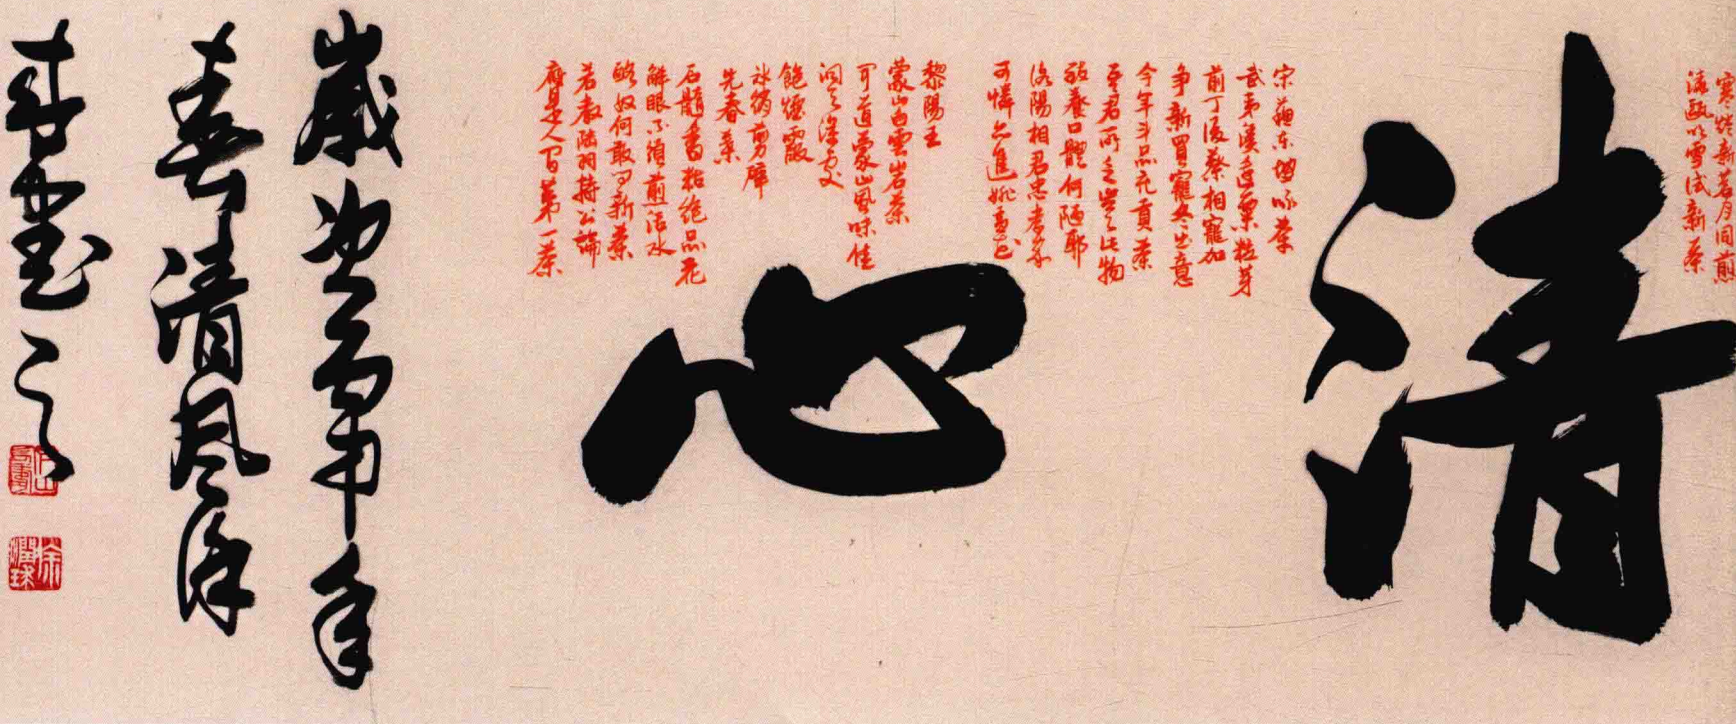 清
宋蘇东坡咏茶
武夷溪邊粟粒芽
前丁後蔡相寵加
争新買寵各出意
今年斗品充貢茶
吾君所乏豈此物
致養口體何陋耶
洛陽相君忠孝家
可憐亦進姚黄花
心
黎陽王
蒙山白雲岩茶
可道蒙山風味佳
洞天深处
飽煙霞
冰綃剪碎
先春葉
石髓香粘絶品花
蟹眼不須煎活水
酪奴何敢问新葉
若教陸羽持公論
應是人間第一茶
歲次丙申年
春清风徐